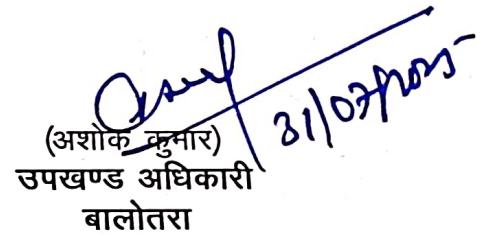 31/07/2025
(अशोक कुमार)
उपखण्ड अधिकारी
बालोतरा